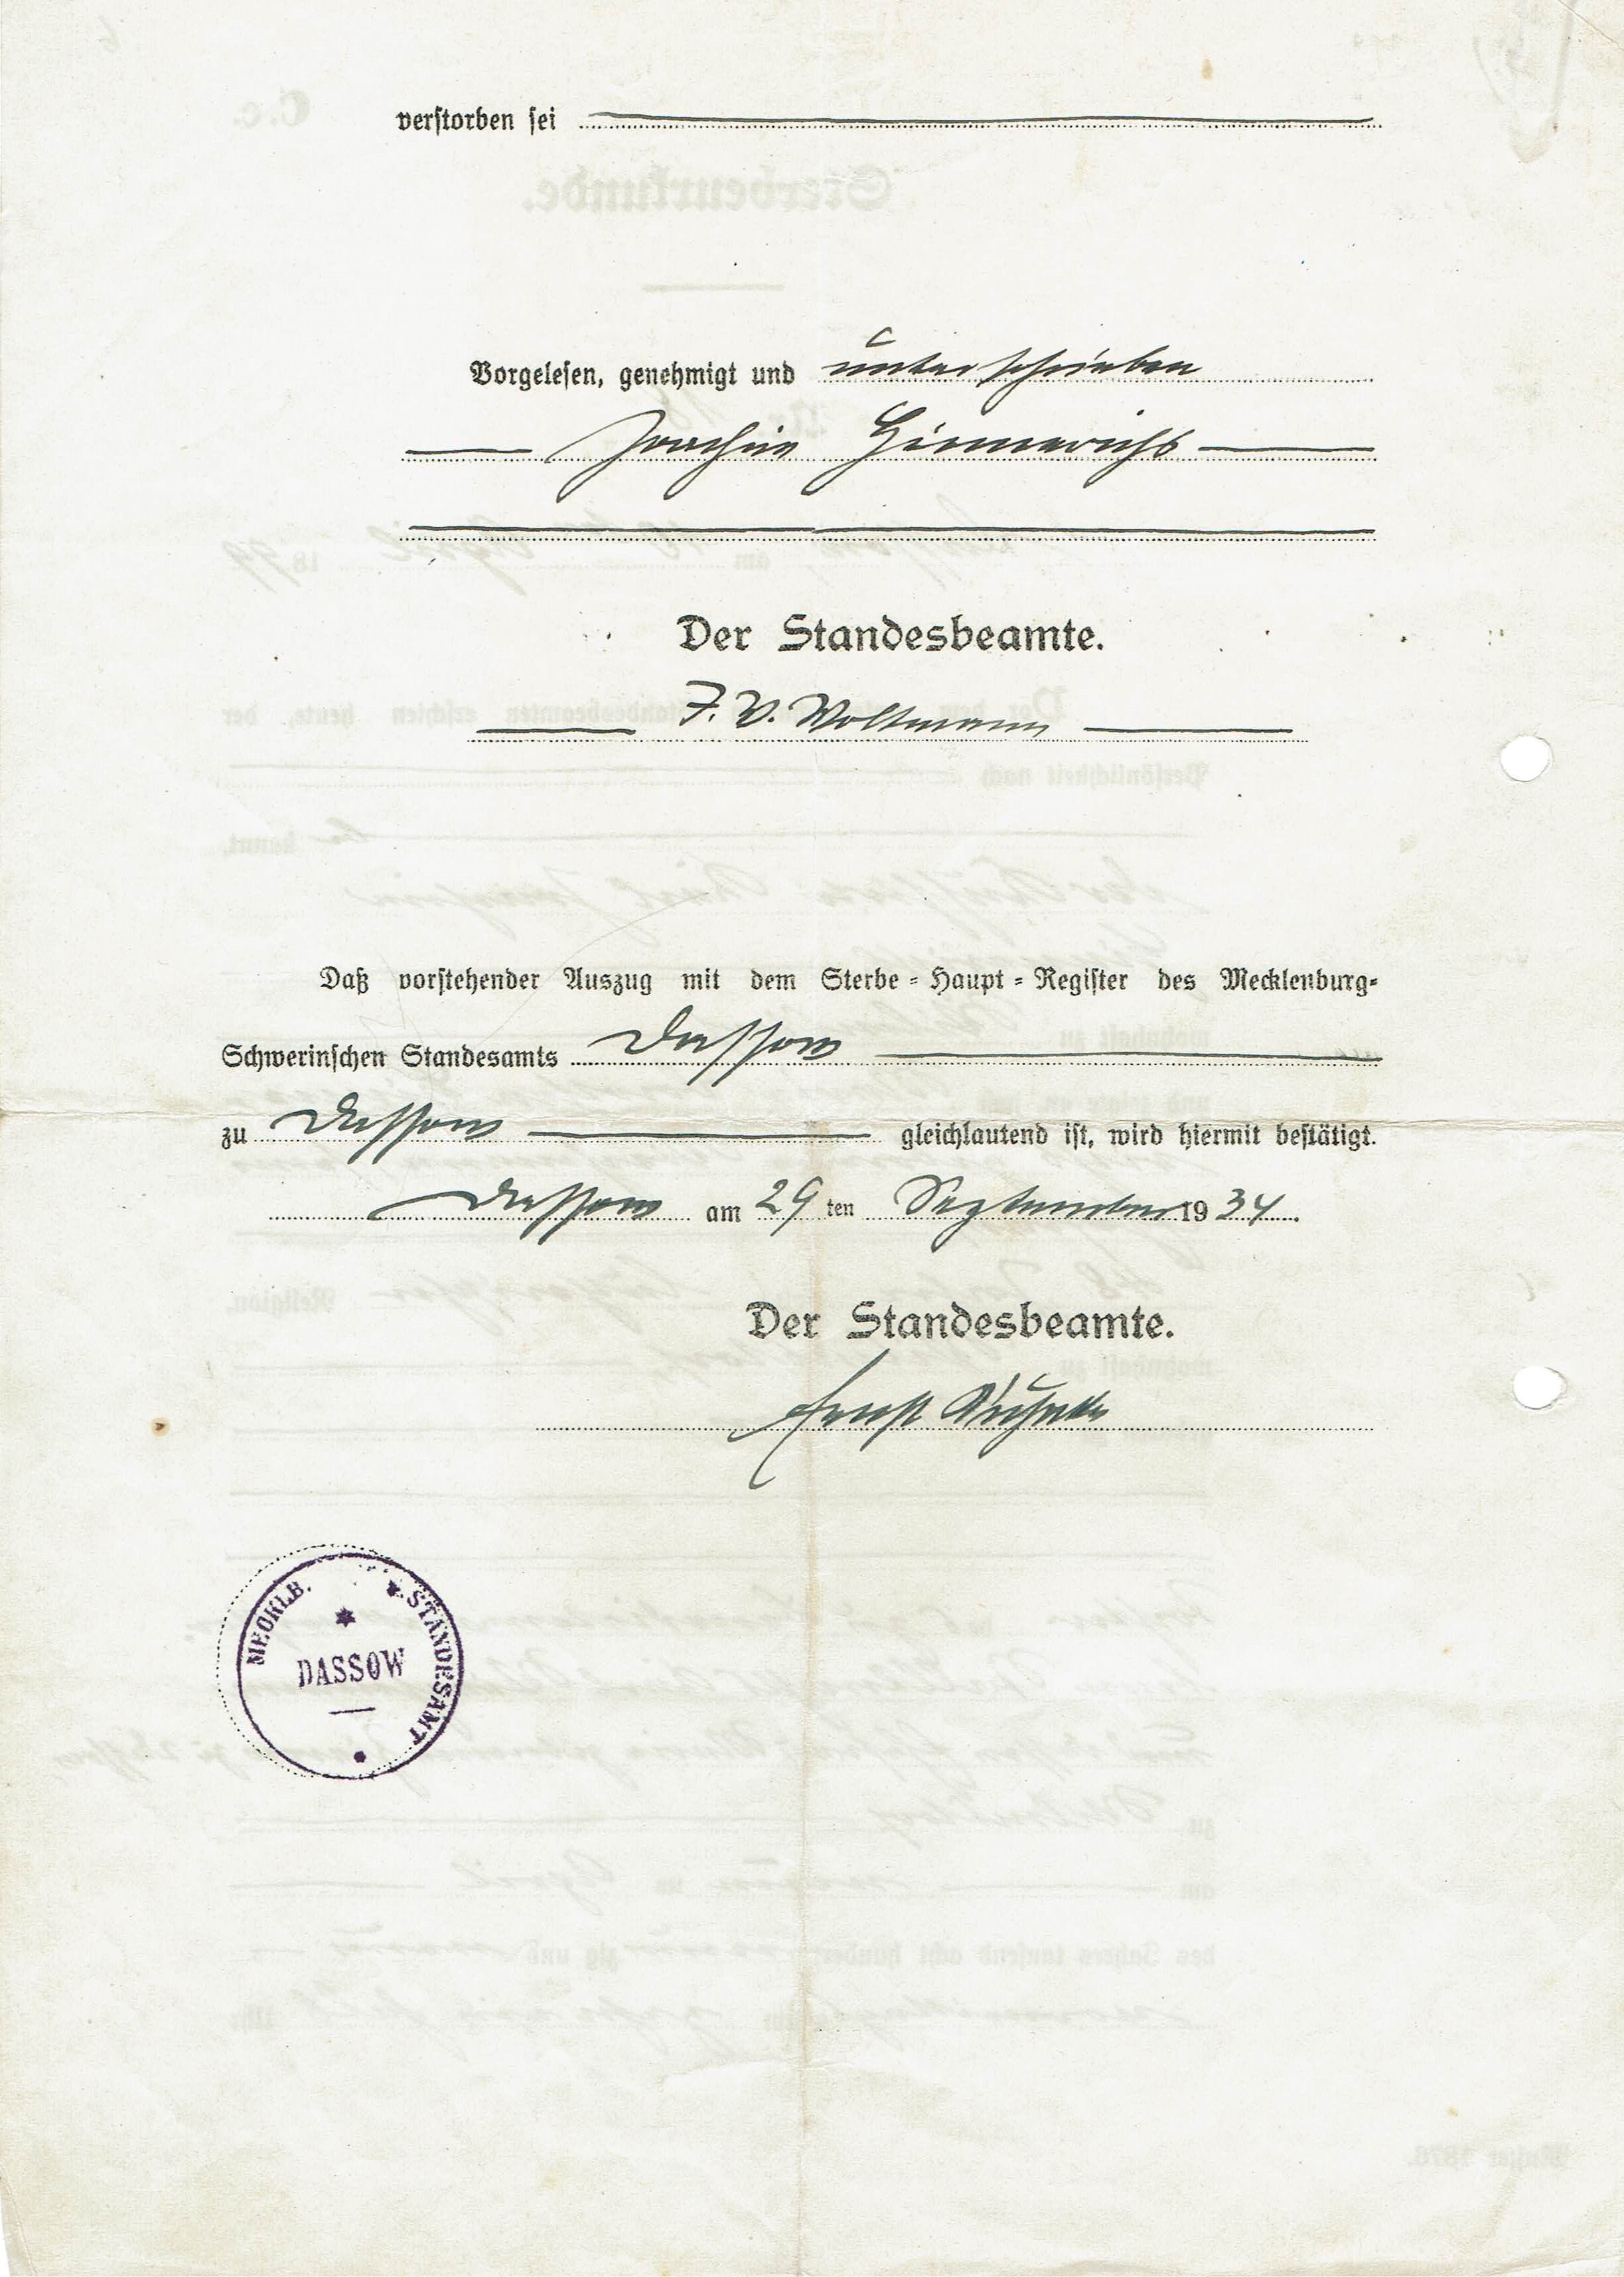 verstorben sei
Vorgelesen, genehmigt und unterschrieben
Joachim Hinnerichs
Der Standesbeamte.
J. V. Woltmann
Daß vorstehender Auszug mit dem Sterbe-Haupt-Register des Mecklenburg-
Schwerinschen Standesamts Dassow
zu Dassow gleichlautend ist, wird hiermit bestätigt.
Dassow am 29 ten September 1934.
Der Standesbeamte.
Ernst
MECKLB. STANDESAMT
DASSOW